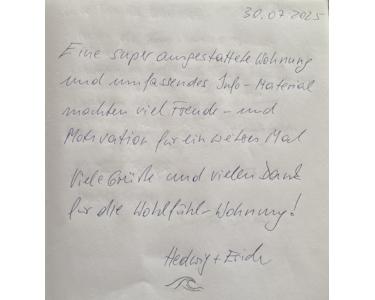 30.07.2025
Eine super ausgestattete Wohnung
und umfassendes Info-Material
machten viel Freude - und
Motivation für ein weiteres Mal
Viele Grüße und vielen Dank
für die Wohlfühl-Wohnung!
Hedwig + Erich